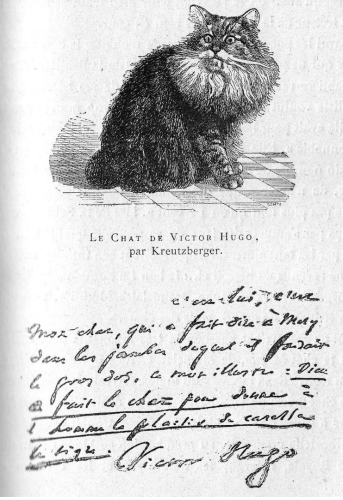 LE CHAT DE VICTOR HUGO,
par Kreutzberger.
c'est lui, c'est
mon chat, qui a fait dire à Méry
dans les jambes duquel il faisait
le gros dos, ce mot illustre : Dieu
a fait le chat pour donner à
l'homme le plaisir de caresser
le tigre.
Victor Hugo